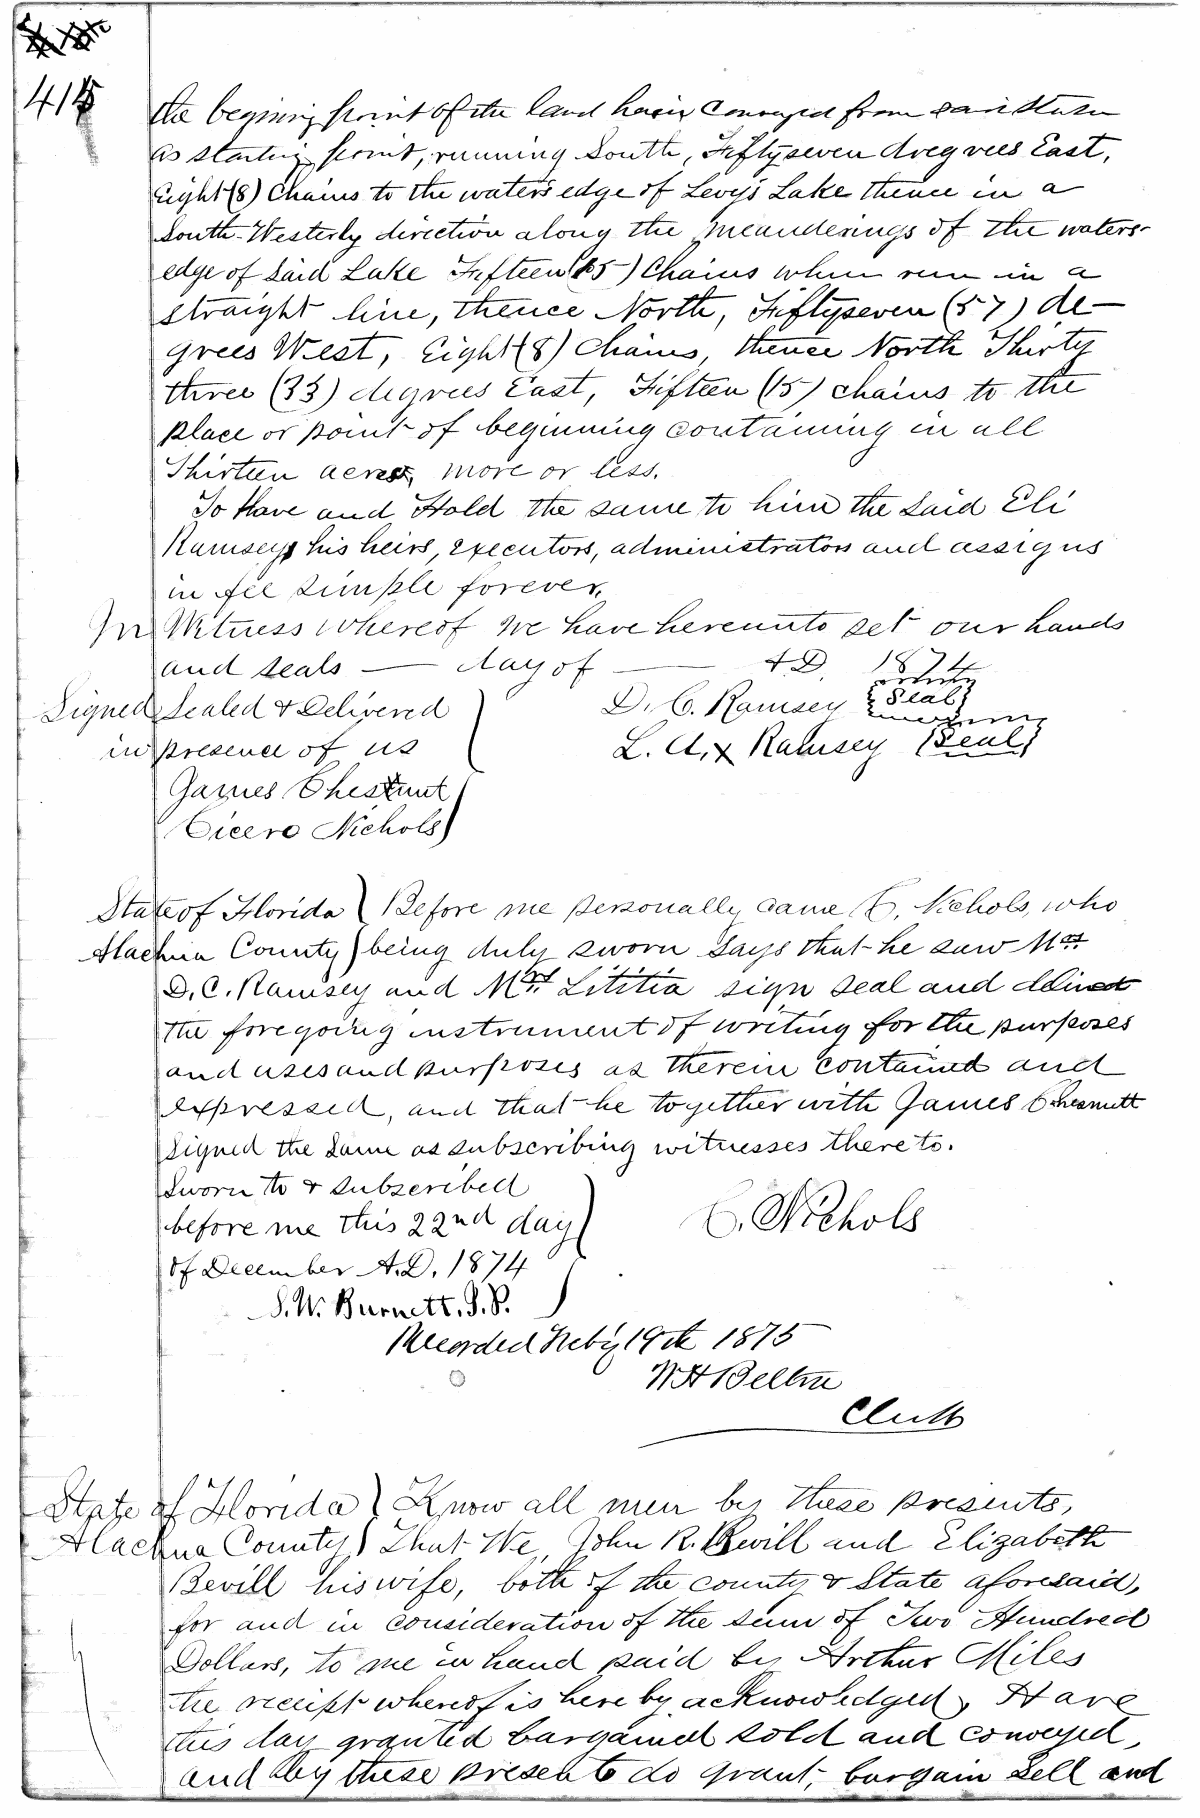 415
the begining point of the land herein conveyed from said stake
as starting point, running South, Fiftyseven degrees East,
Eight (8) Chains to the waters edge of Levys Lake thence in a
South-Westerly direction along the meanderings of the waters-
edge of Said Lake Fifteen (15) Chains when run in a
straight line, thence North, Fiftyseven (57) de-
grees West, Eight (8) Chains, thence North Thirty
three (33) degrees East, Fifteen (15) chains to the
place or point of beginning containing in all
Thirteen acres, more or less.
To Have and Hold the same to him the Said Eli
Ramsey his heirs, executors, administrators and assigns
in fee simple forever.
In Witness whereof we have hereunto set our hands
and seals — day of — A D. 1874
Signed Sealed & Delivered ) D. C. Ramsey {Seal}
in presence of us L. A. x Ramsey {Seal}
James Chestnut )
Cicero Nichols )
State of Florida ) Before me personally came C. Nichols, who
Alachua County ) being duly sworn Says that he saw Mrs
D. C. Ramsey and Mrs Lititia sign seal and
the foregoing instrument of writing for the purposes
and uses and purposes as therein contained and
expressed, and that he together with James Chesnutt
signed the Same as subscribing witnesses thereto.
Sworn to & subscribed )
before me this 22nd day ) C. Nichols
of December A.D. 1874
S. W. Burnett. J. P. )
Recorded Feby 19th 1875
W H Belton
Clerk
State of Florida ) Know all men by these presents,
Alachua County ) That We, John R. Bevill and Elizabeth
Bevill his wife, both of the county & State aforesaid,
for and in consideration of the sum of Two Hundred
Dollars, to me in hand paid by Arthur Miles
the receipt whereof is hereby acknowledged, Have
this day granted bargained sold and conveyed,
and by these presents do grant, bargain Sell and